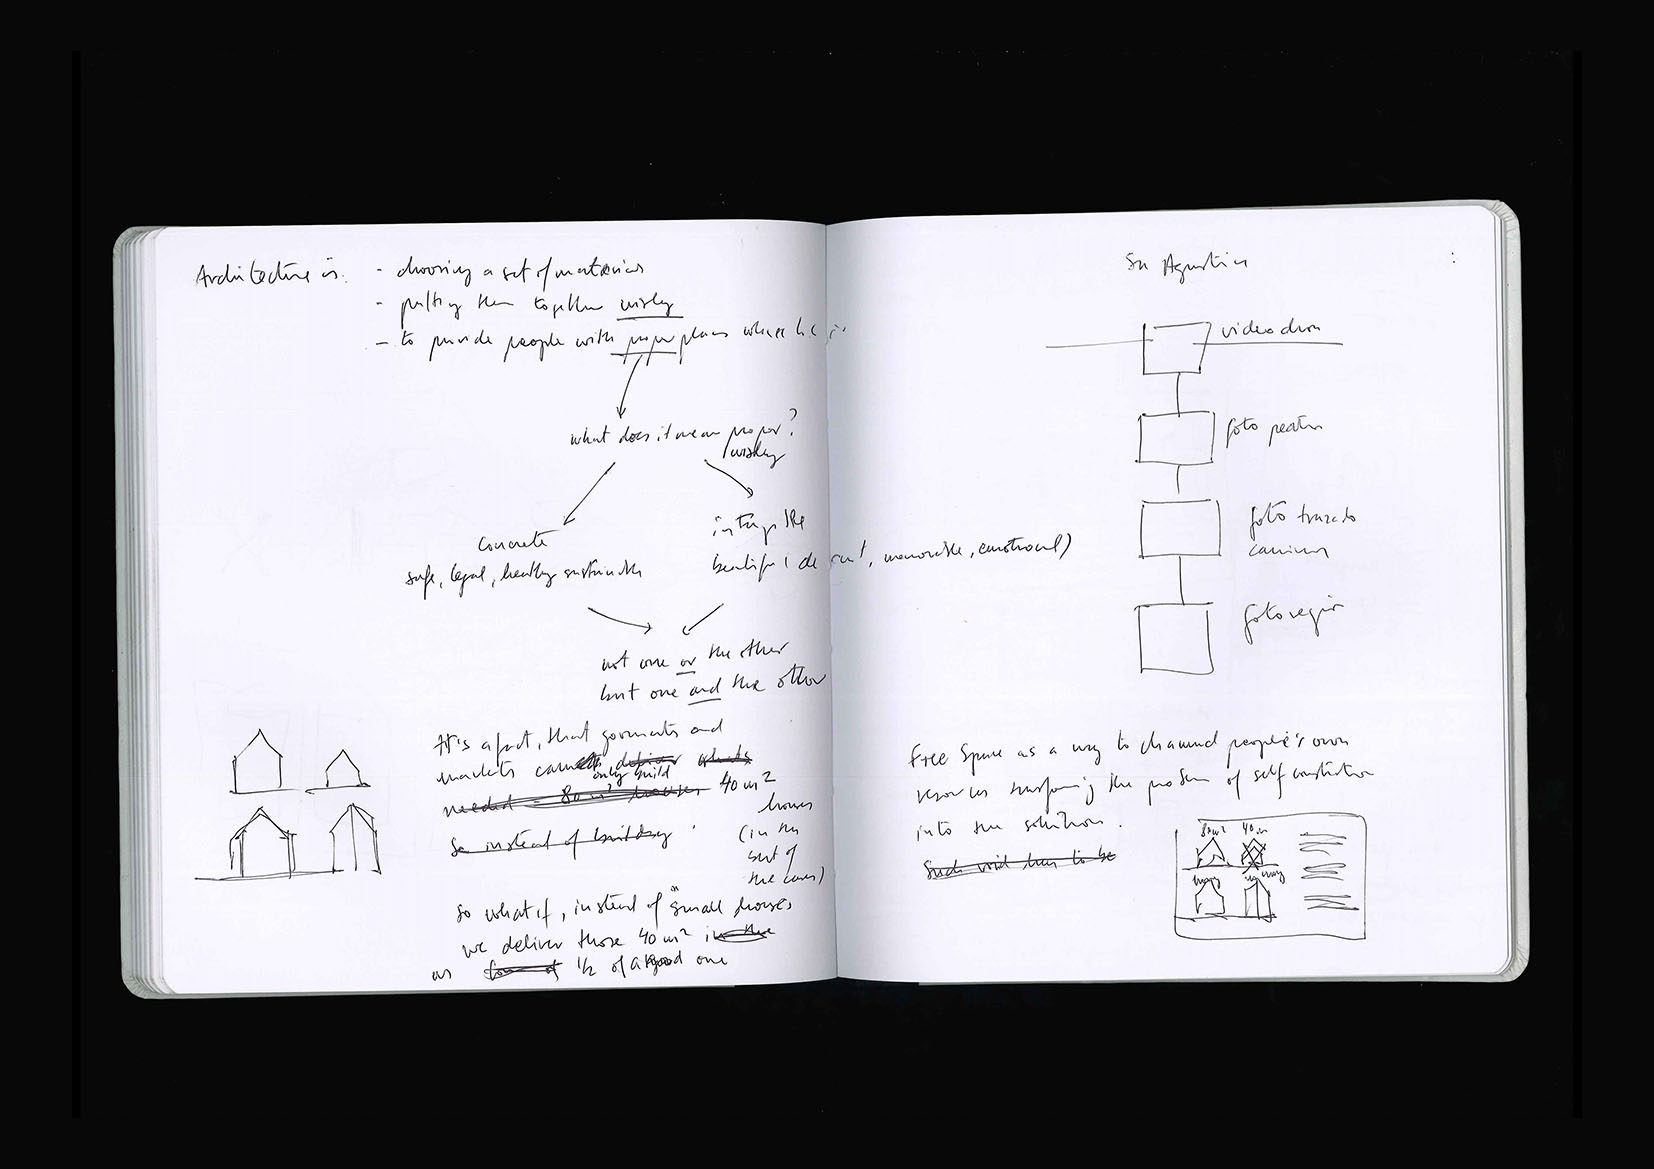 Architecture is: - choosing a set of materials
- putting them together wisely
- to provide people with proper places where
what does it mean proper?
wisely
concrete
safe, legal, healthy sustainable
intangible
beautiful, memorable, emotional)
not one or the other
but one and the other
It's a fact, that
markets
only build
needed - 80 m² houses 40 m²
houses
So instead of building
(in the
best of
the cases)
So what if, instead of small houses
we deliver those 40 m² in the
as 1/2 of a good one
Sn Agustin
video dron
foto peatón
foto trazado
caminos
foto región
Free Space as a way to channel people's own
resources transforming the problem of self construction
into the solution.
Such void has to be
80m² 40m